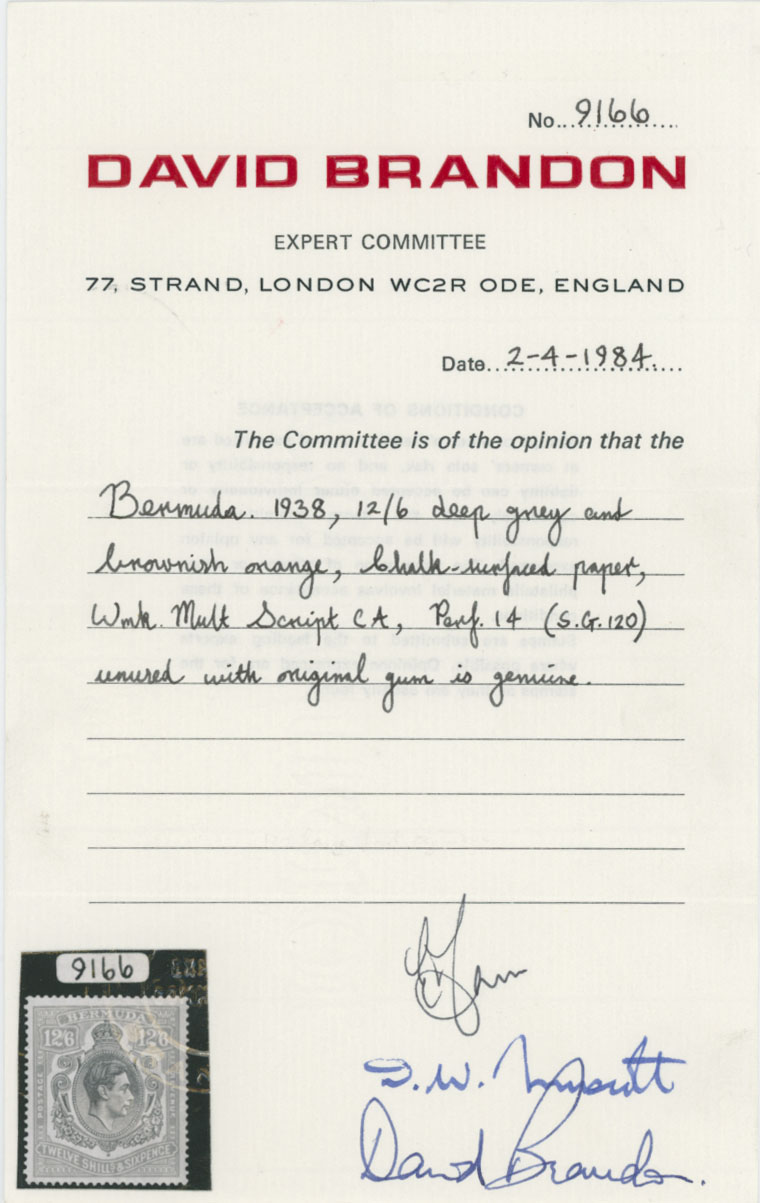 No. 9166
DAVID BRANDON
EXPERT COMMITTEE
77, STRAND, LONDON WC2R ODE, ENGLAND
Date 2-4-1984.
The Committee is of the opinion that the
Bermuda. 1938, 12/6 deep grey and
brownish orange, Chalk-surfaced paper,
Wmk. Mult Script CA, Perf. 14 (S.G.120)
unused with original gum is genuine.
9166
BERMUDA
12/6 12/6
POSTAGE REVENUE
TWELVE SHILLS & SIXPENCE
D.W.
David Brandon.